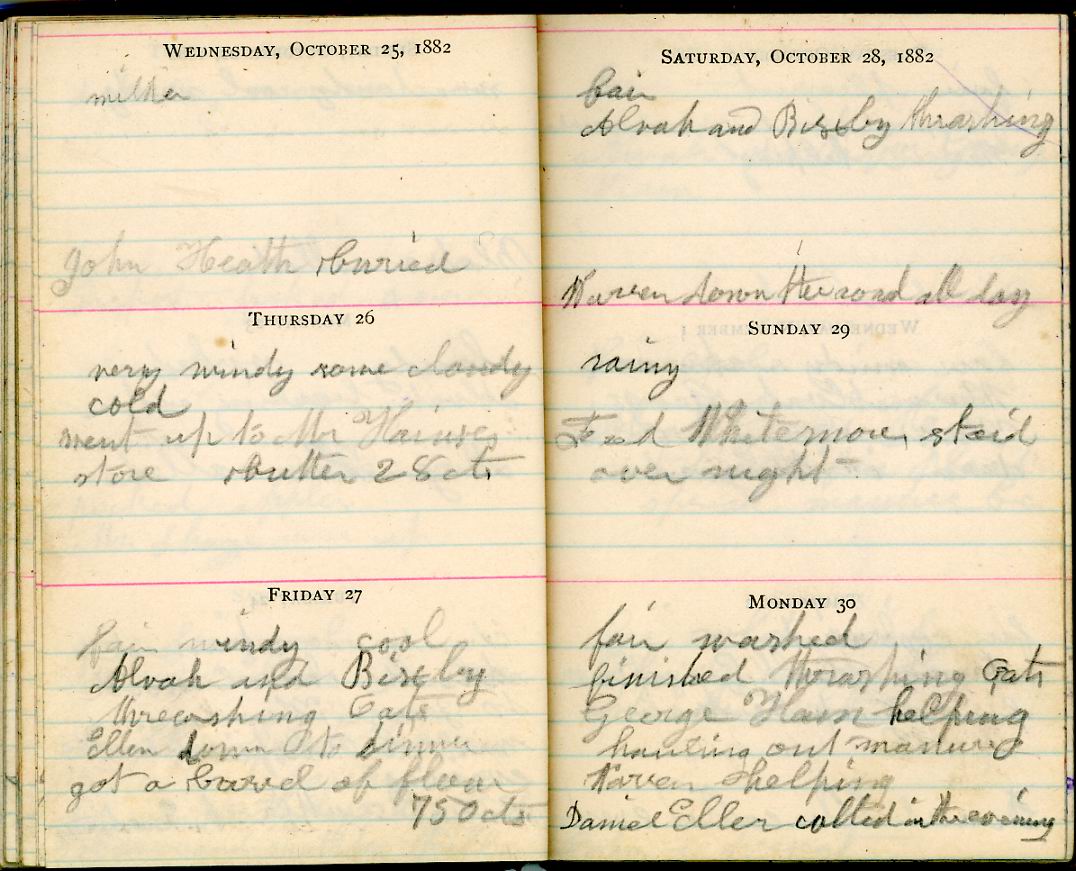 WEDNESDAY, OCTOBER 25, 1882
milder
John Heath buried
THURSDAY 26
very windy some cloudy
cold
went up to Mr Haines
store butter 28 cts
FRIDAY 27
fair windy cool
Alvah and Bixby
threashing Oats
Ellen down to dinner
got a barel of flour
750 cts
SATURDAY, OCTOBER 28, 1882
fair
Alvah and Bixby thrashing
Waren down the road all day
SUNDAY 29
rainy
Fred Whitemore staid
over night
MONDAY 30
fair washed
finished thrashing Oats
George Ham helping
hauling out manure
Waren helping
Daniel Eller called in the evening